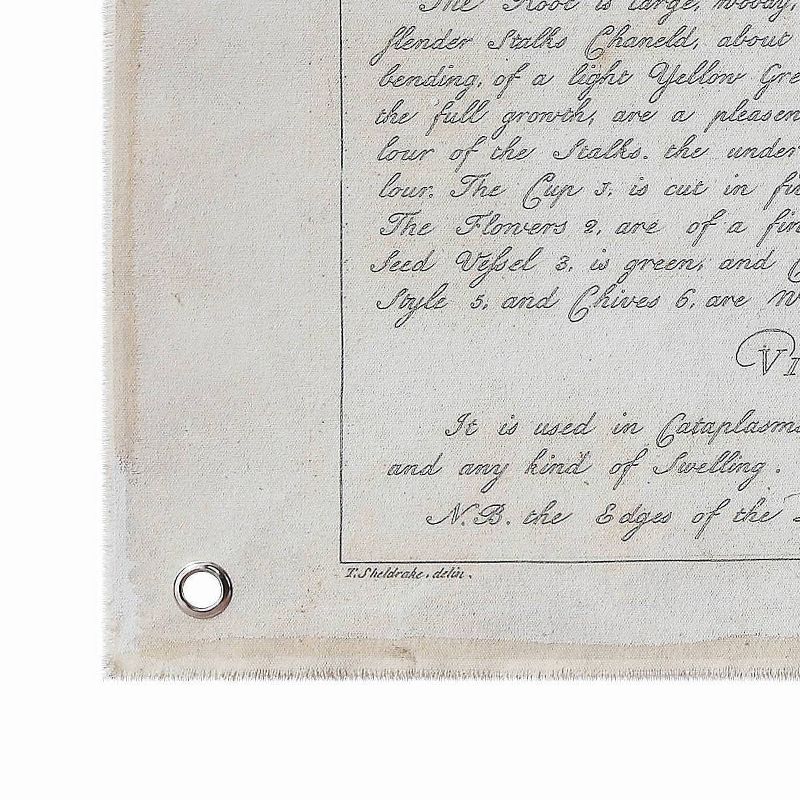 The Root is large, woody,
slender Stalks Chaneld, about
bending, of a light Yellow Gre
the full growth, are a pleasen
lour of the Stalks. the under
lour. The Cup 1. is cut in fi
The Flowers 2. are of a fin
Seed Vessel 3. is green, and
Style 5. and Chives 6. are w
Vi
It is used in Cataplasms
and any kind of Swelling.
N.B. the Edges of the
T. Sheldrake. delin.